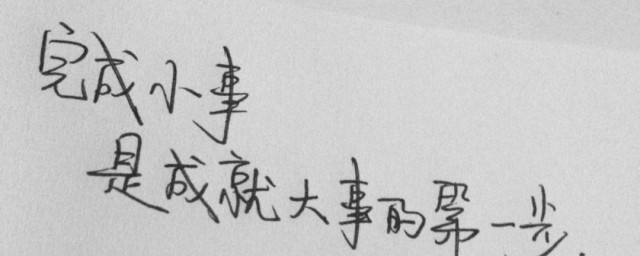 完成小事
是成就大事的第一步.